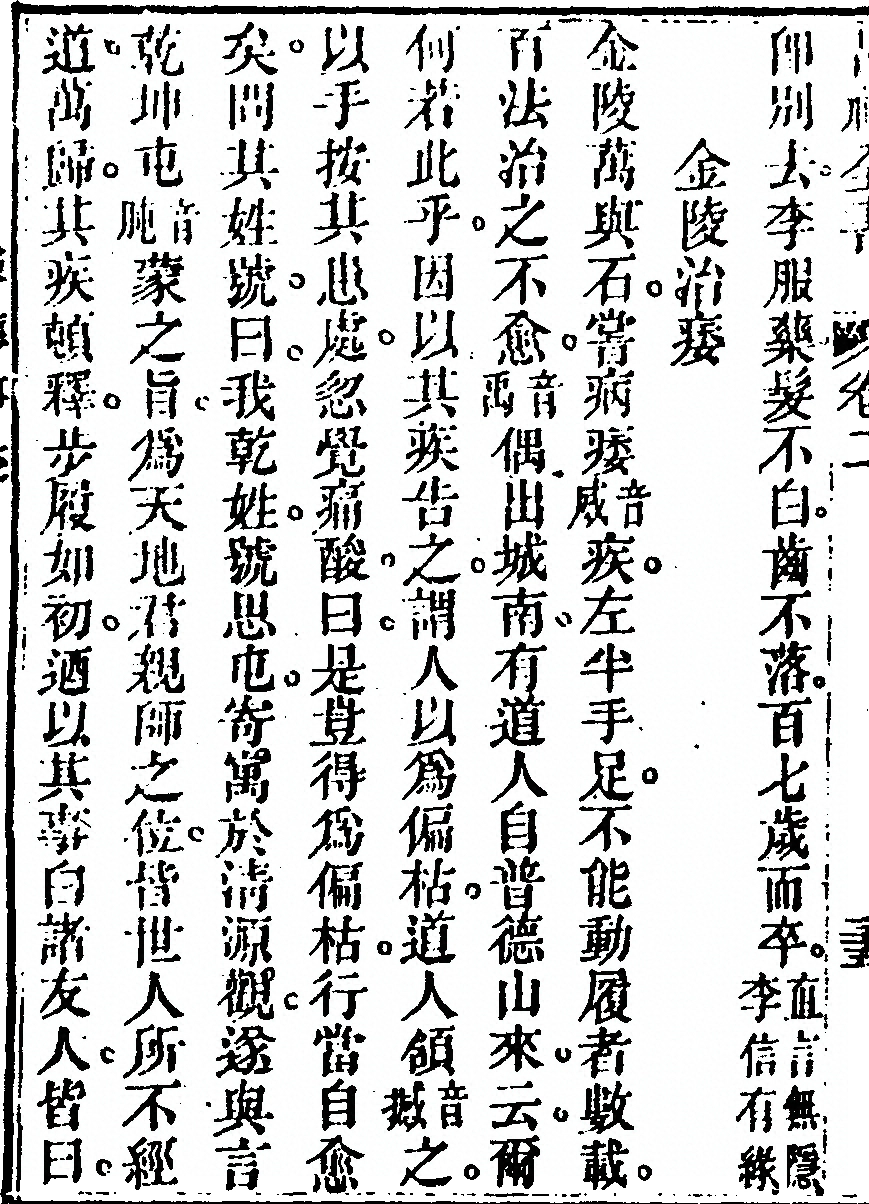 卽別去李服藥髮不白齒不落百七歲而卒直言無隱李信有緣
金陵治痿
金陵萬與石嘗病痿音威疾左半手足不能動履者數載
百法治之不愈音禹偶出城南有道人自普德山來云爾
何若此乎因以其疾告之謂人以爲偏枯道人頷音撼之
以手按其患處忽覺痛酸曰是豈得爲偏枯行當自愈
矣問其姓號曰我乾姓號思屯寄寓於清源觀遂與言
乾坤屯音肫蒙之旨爲天地君親師之位皆世人所不經
道萬歸其疾頓釋步履如初迺以其事白諸友人皆曰